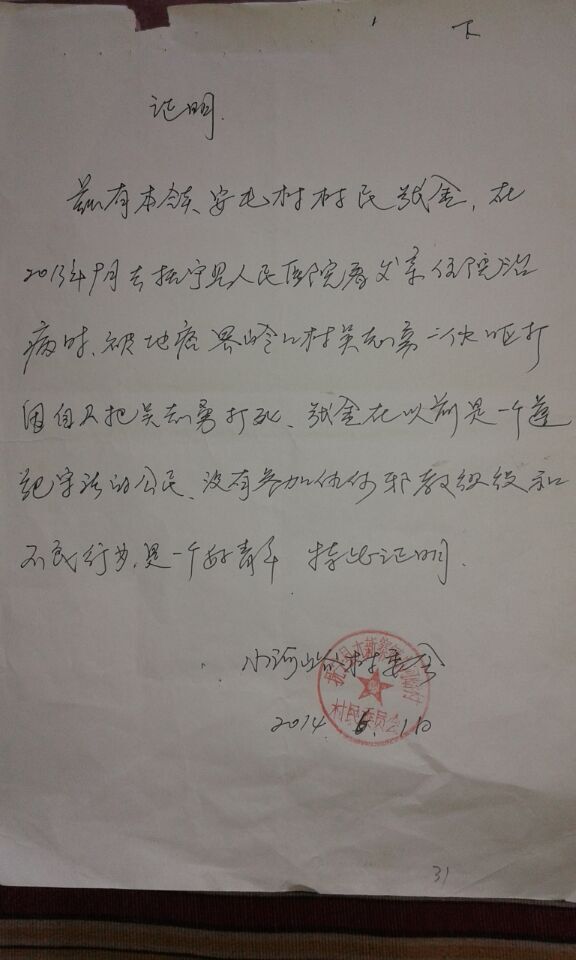 下
证明.
兹有本镇、安屯村村民张金,在
2013年9月去抚宁县人民医院看父亲住院治
病时、被地痞 界岭口村吴志勇一伙
因自卫把吴志勇打死、张金在以前是一个遵
纪守法的公民、没有参加任何邪教组织和
不良行为,是一个好青年 特此证明.
小河峪村委会
村民委员会
2014. 6. 1日
31